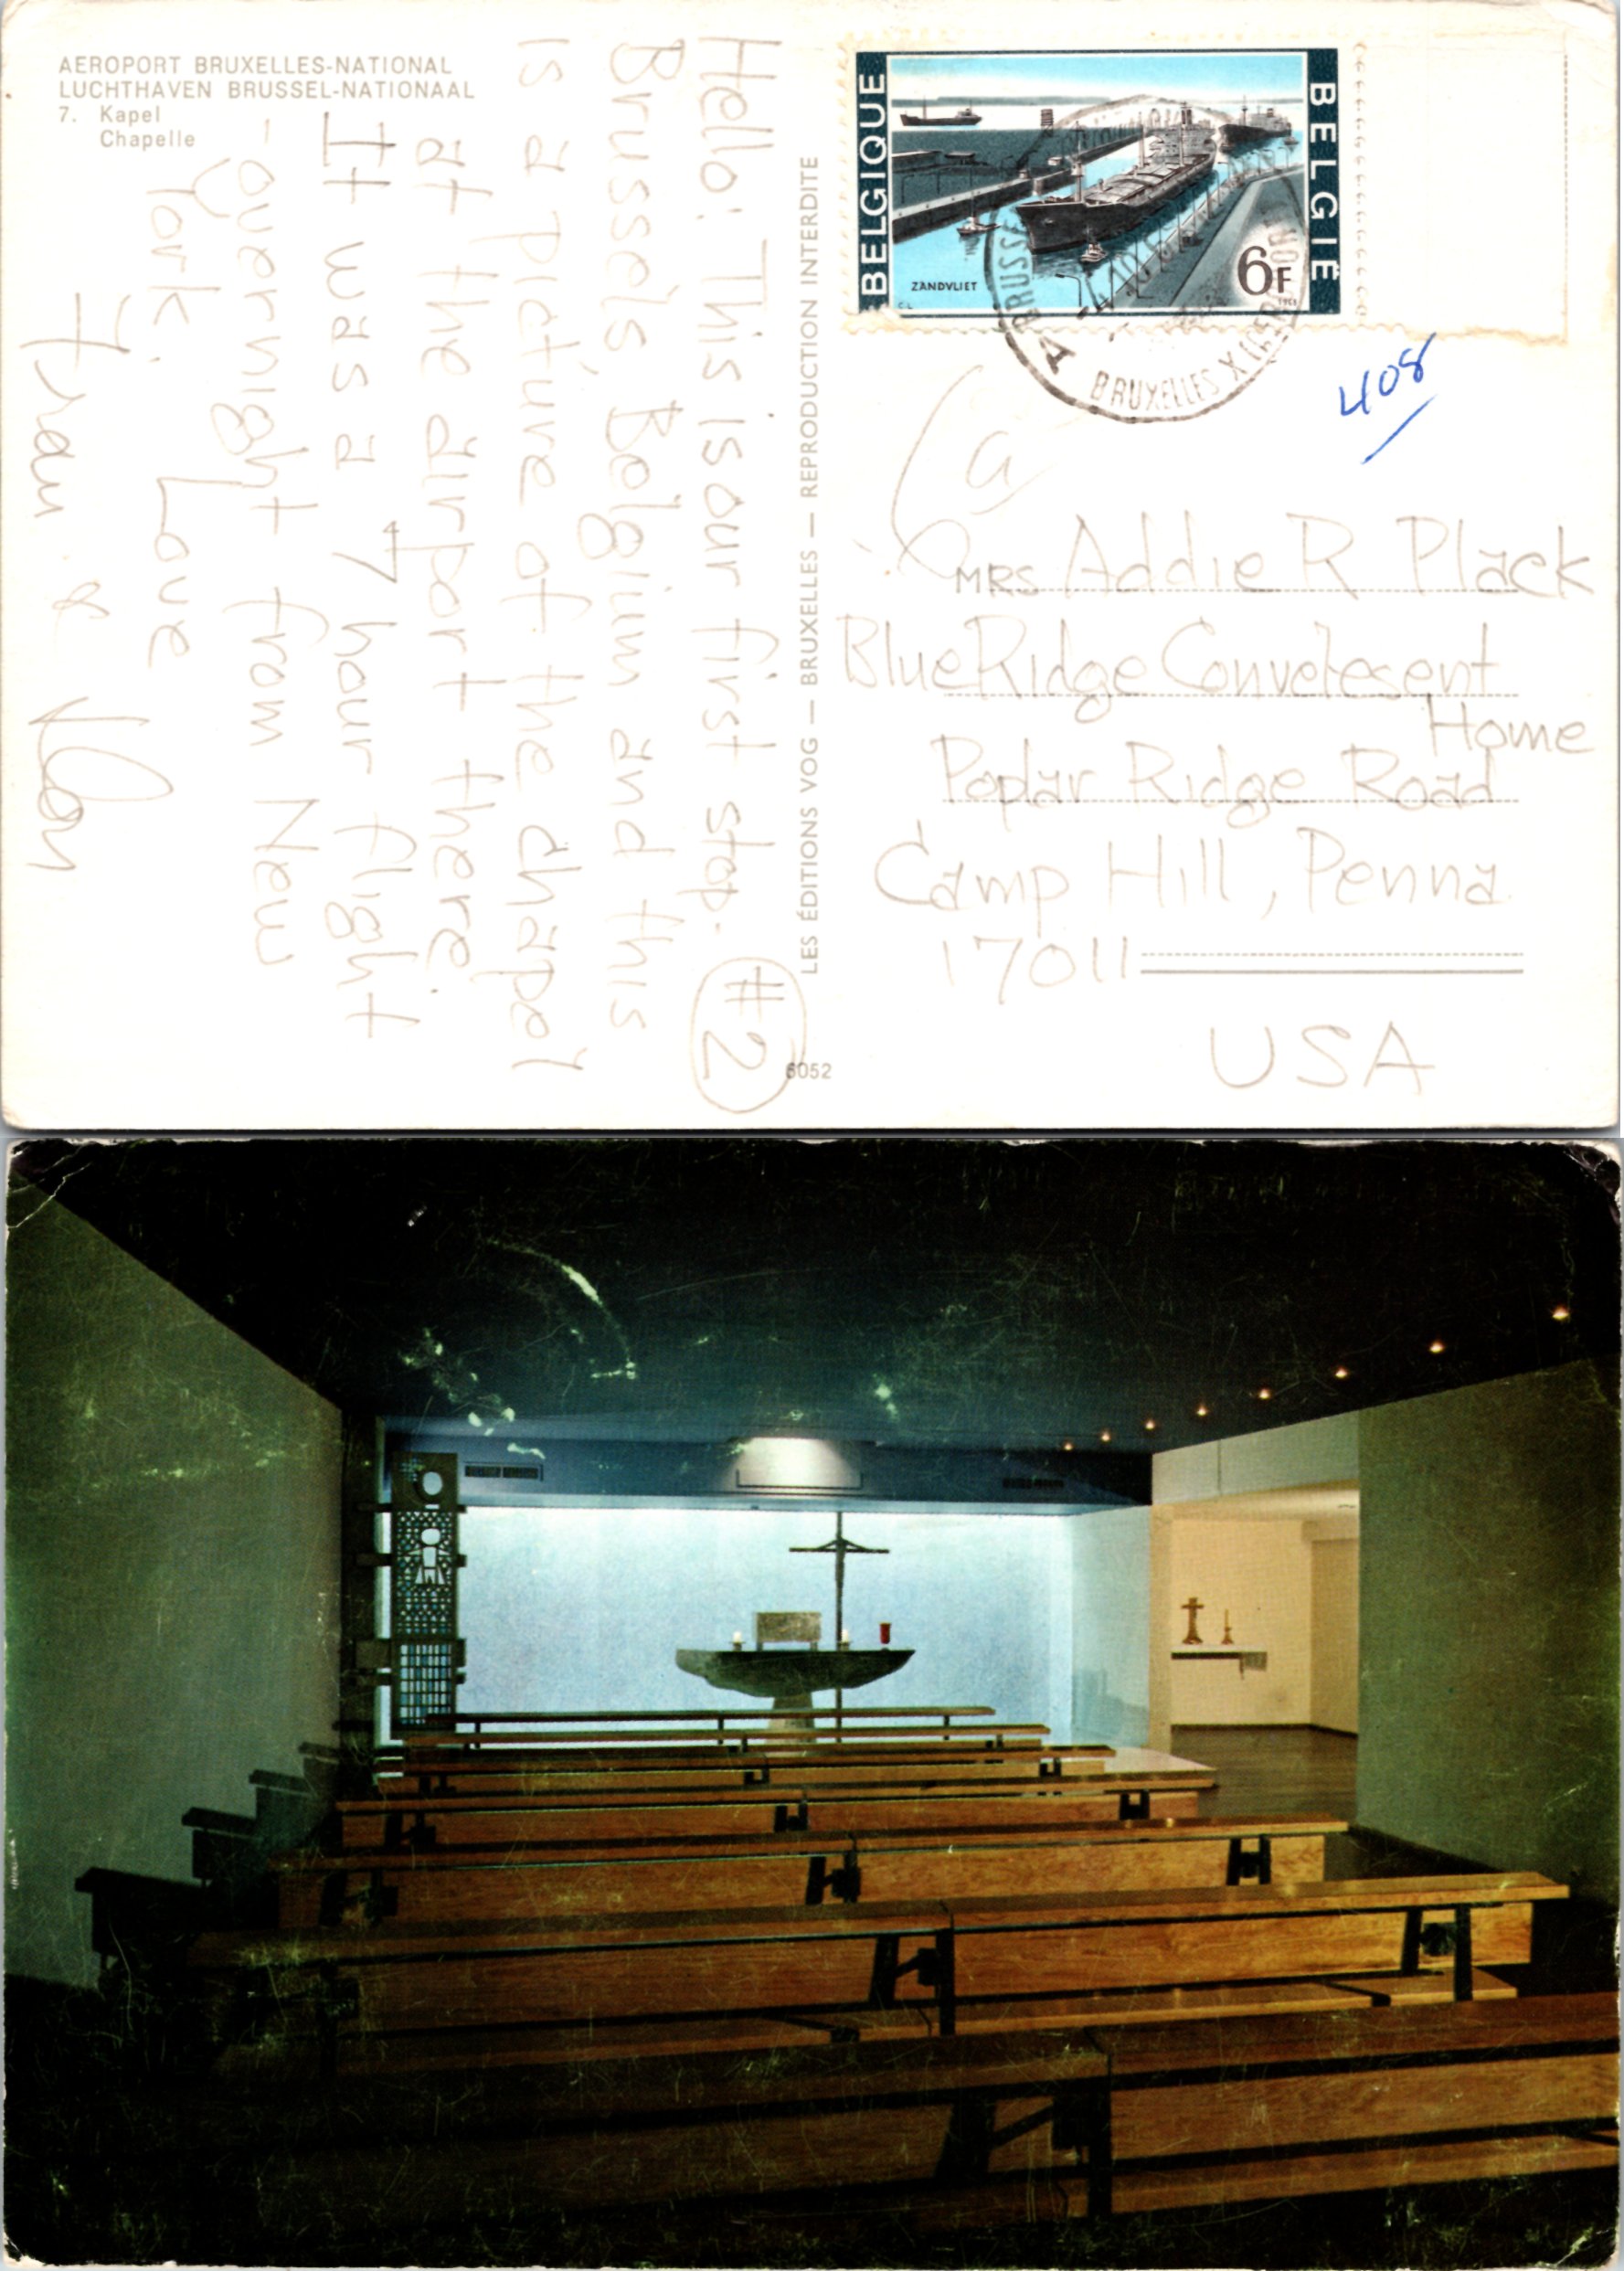 AEROPORT BRUXELLES-NATIONAL
LUCHTHAVEN BRUSSEL-NATIONAAL
7. Kapel
Chapelle
Hello: This is our first stop.
Brussels, Belgium and this
is a picture of the chapel
at the airport there.
It was a 7 hour flight
-overnight from New
York.
Love
Fran &
#2
LES ÉDITIONS VOG — BRUXELLES — REPRODUCTION INTERDITE
6052
BELGIQUE
BELGIË
ZANDVLIET
6F
C.L.
1968
BRUXELLES X
A
408
MRS Addie R Plack
Blue Ridge Convelesent
Home
Poplar Ridge Road
Camp Hill, Penna
17011
USA